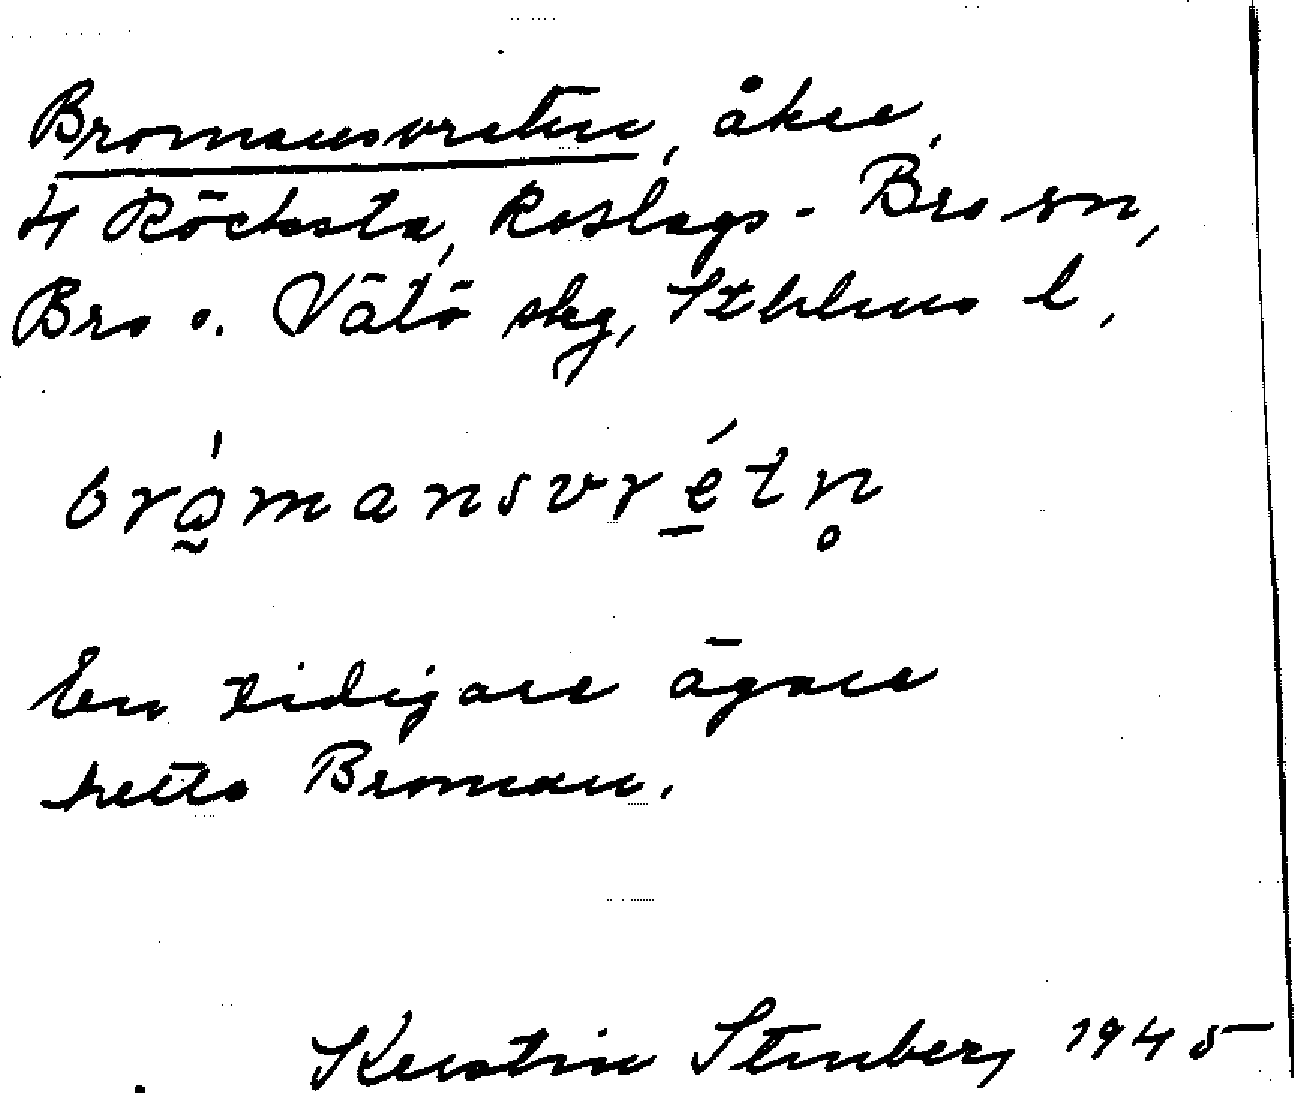 Bromansvreten, åker,
4 Röcksta, Roslags-Bro sn,
Bro o. Vätö skg, Sthlms l,
brå̰mansvré̱tn̥
En tidigare ägare
hette Broman.
Kerstin 1945